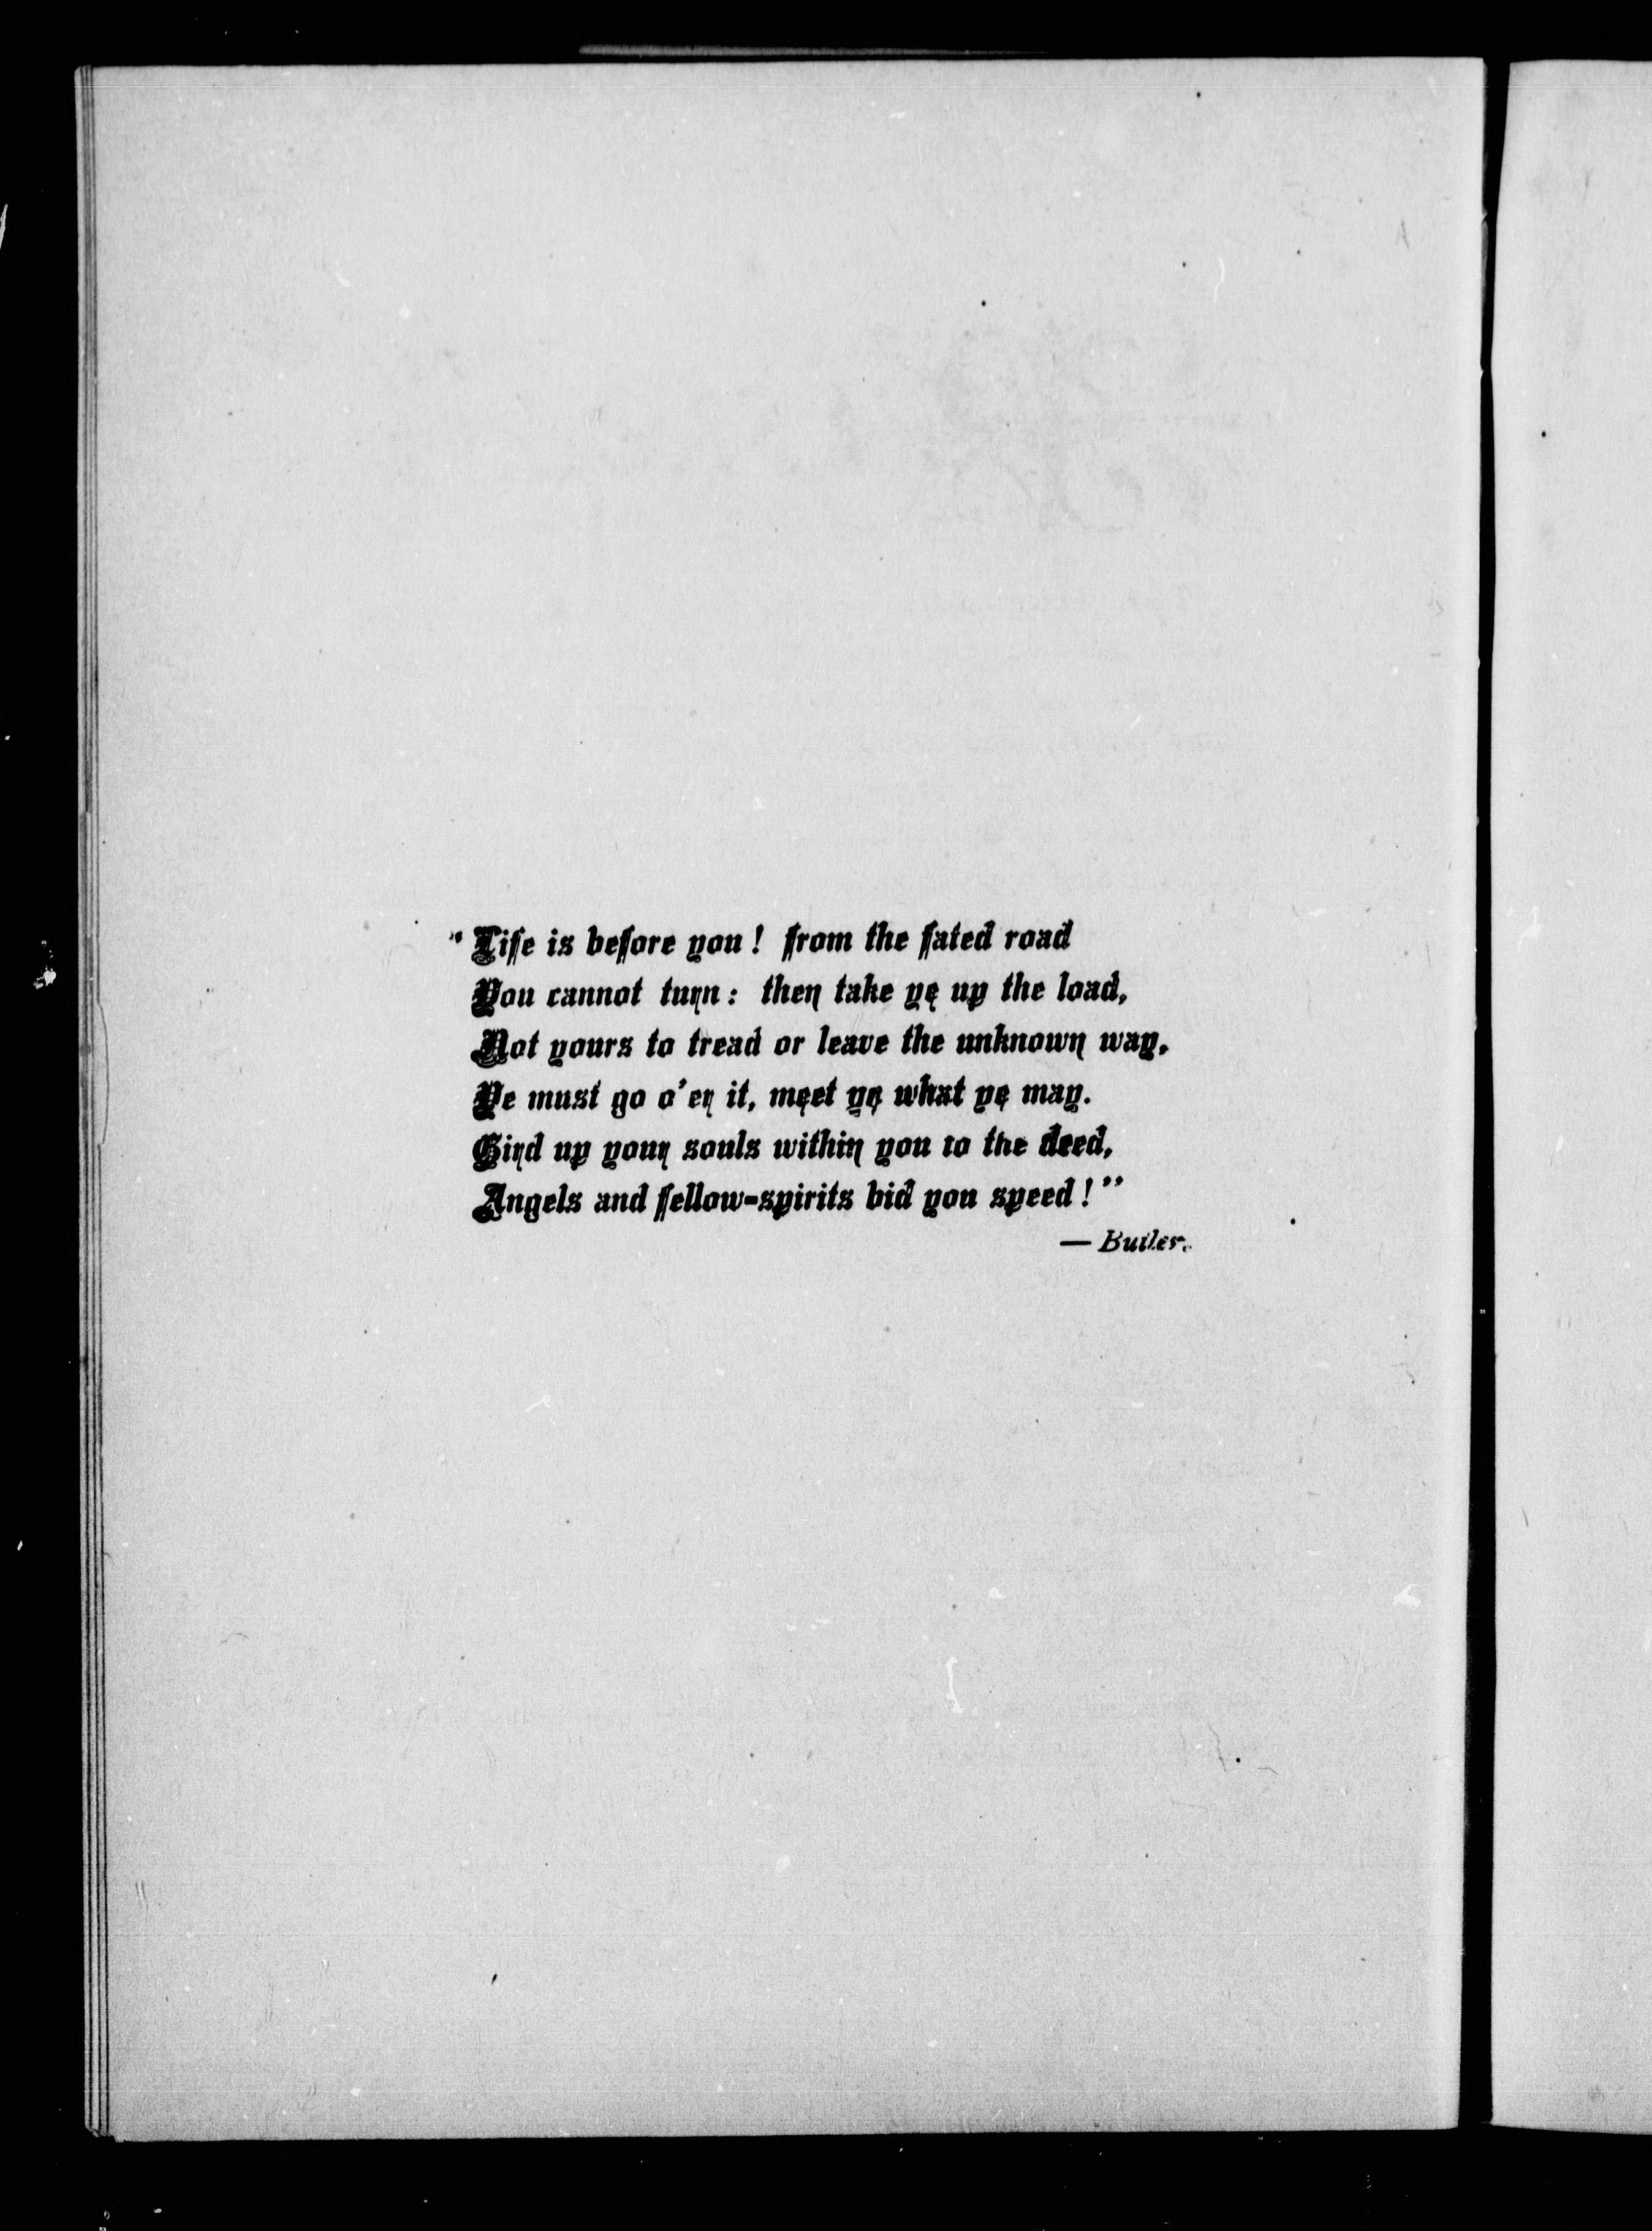 "Life is before you! from the fated road
You cannot turn: then take ye up the load,
Not yours to tread or leave the unknown way,
Ye must go o'er it, meet ye what ye may.
Gird up your souls within you to the deed,
Angels and fellow-spirits bid you speed!"
— Butler.